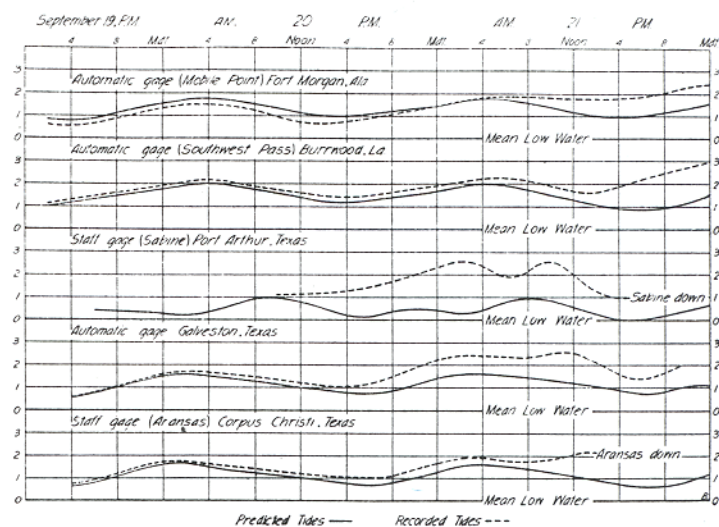 September 19, P.M. A.M. 20 P.M. A.M. 21 P.M.
4 8 Mdt 4 8 Noon 4 8 Mdt 4 8 Noon 4 8 Mdt
3 3
Automatic gage (Mobile Point) Fort Morgan, Ala
2 2
1 1
0 Mean Low Water 0
Automatic gage (Southwest Pass) Burrwood, La
3 3
2 2
1 1
0 Mean Low Water 0
Staff gage (Sabine) Port Arthur, Texas
3 3
2 2
1 Sabine down 1
0 Mean Low Water 0
Automatic gage Galveston, Texas
3 3
2 2
1 1
0 Mean Low Water 0
Staff gage (Aransas) Corpus Christi, Texas
3 3
2 Aransas down 2
1 1
0 Mean Low Water
Predicted Tides Recorded Tides